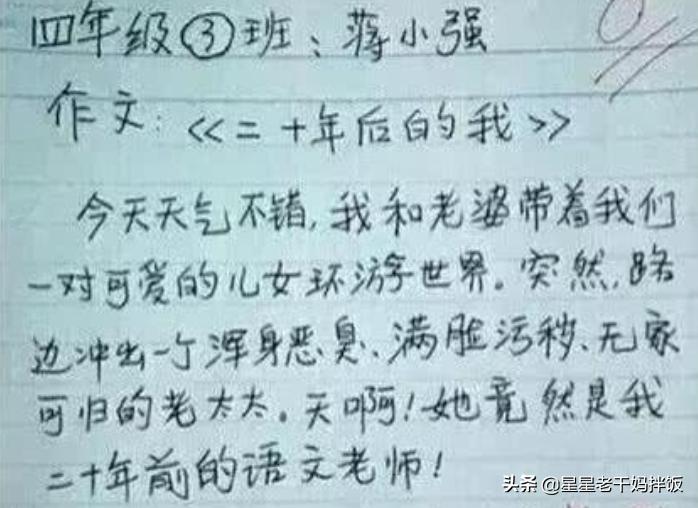 四年级③班：蒋小强
作文：《二十年后的我》
今天天气不错，我和老婆带着我们
一对可爱的儿女环游世界。突然，路
边冲出一个浑身恶臭、满脸污秽、无家
可归的老太太。天啊！她竟然是我
二十年前的语文老师！
头条 @星星老干妈拌饭